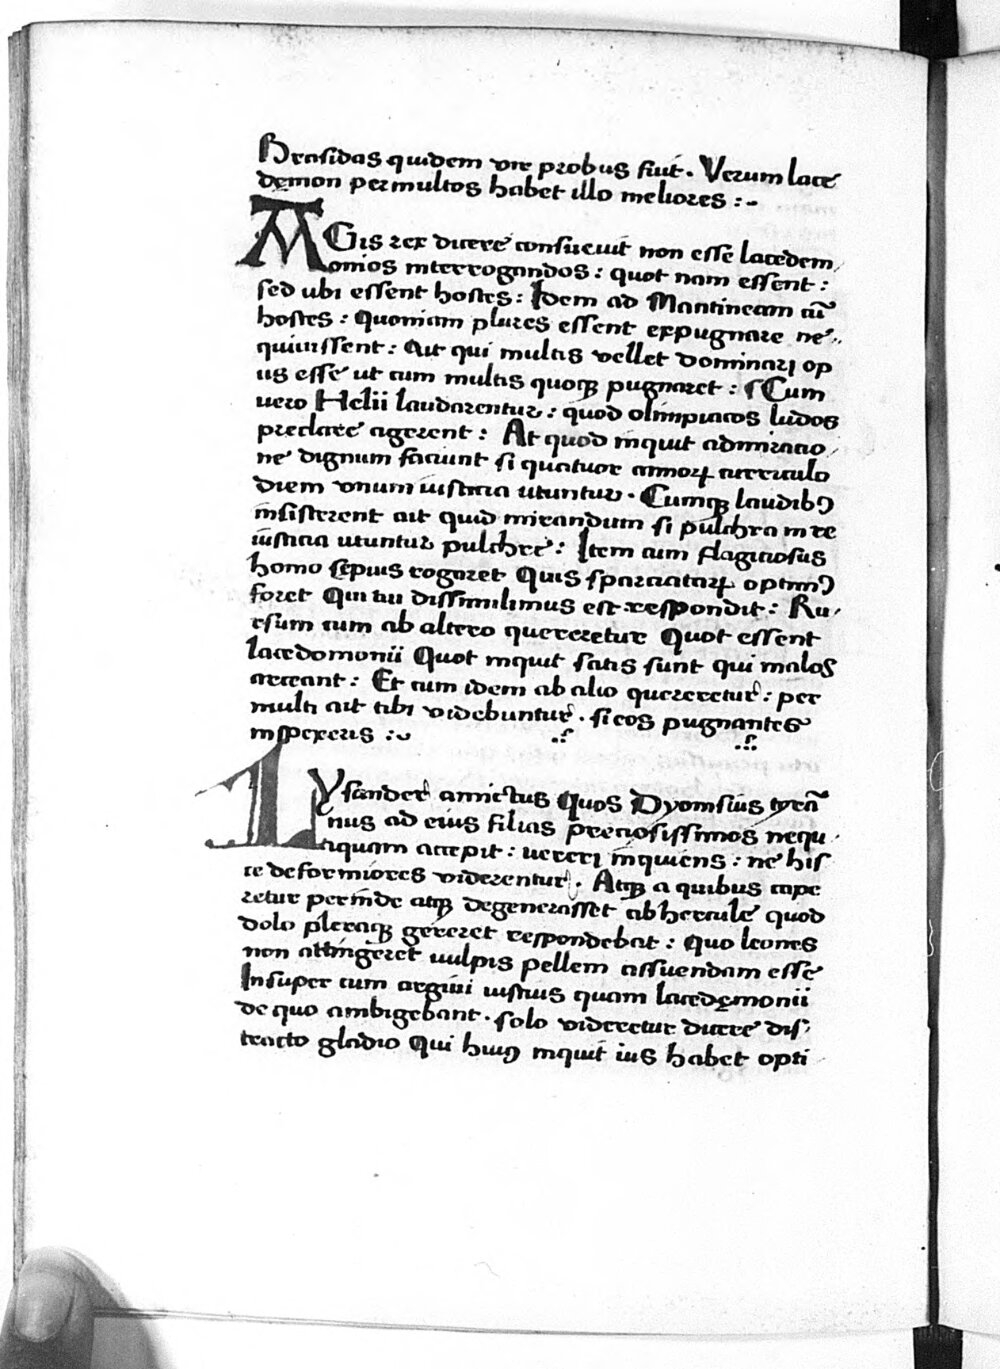 Brasidas quidem vir probus fuit. Verum lace
dęmon permultos habet illo meliores :-
AGis rex dicere consueuit non esse lacedem,
onios interrogandos : quot nam essent :
sed ubi essent hostes : Idem ad Mantineam cū
hostes : Quoniam plures essent expugnare ne,,
quiuissent : Ait qui multis vellet dominari op
us esse ut cum multis quoqꝫ pugnaret : Cum
uero Helii laudarentur : quod olimpiacos ludos
preclare agerent : At quod inquit admiracio,
ne dignum faciunt si quatuor annoꝝ curriculo
diem vnum iusticia utuntur. Cumqꝫ laudibꝰ
insisterent ait quid mirandum si pulchra in re
iusticia utuntur pulchre : Item cum flagiciosus
homo sępius rogaret Quis sparciataꝝ optimꝰ
foret Qui tui dissimilimus est respondit : Ru,
rsum cum ab altero quereretur Quot essent
lacedomonii Quot inquit satis sunt qui malos
arceant : Et cum idem ab alio quereretur : per
multi ait tibi videbuntur. si eos pugnantes
inspexeris :
LYsander amictus quos Dyonisius tyrā
nus ad eius filias preciosissimos nequ,
aquam accepit : uereri inquiens : ne his
ce deformiores viderentur. Atqꝫ a quibus cape
retur perinde atqꝫ degenerasset ab hercule quod
dolo pleraqꝫ gereret respondebat : Quo leones
non attingeret uulpis pellem assuendam esse
Insuper cum argiui iustius quam lacedęmonii
de quo ambigebant. solo videretur dicere dis,
tracto gladio Qui huiꝰ inquit ius habet opti